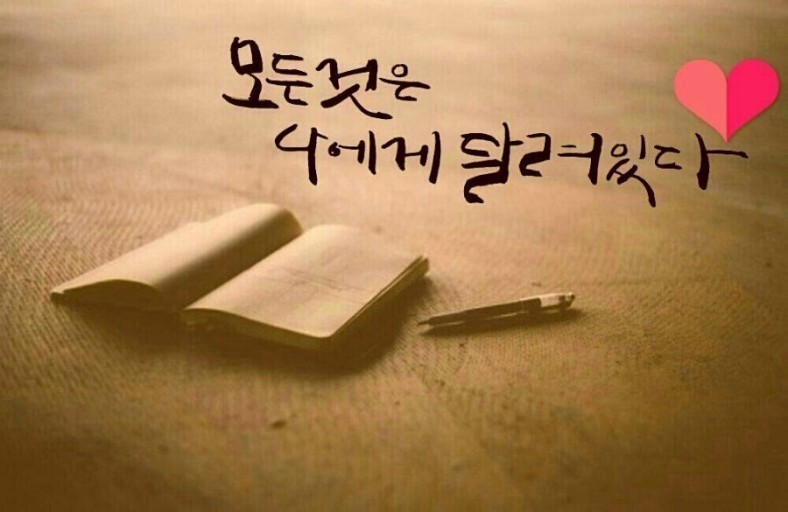 모든것은
나에게 달려있다